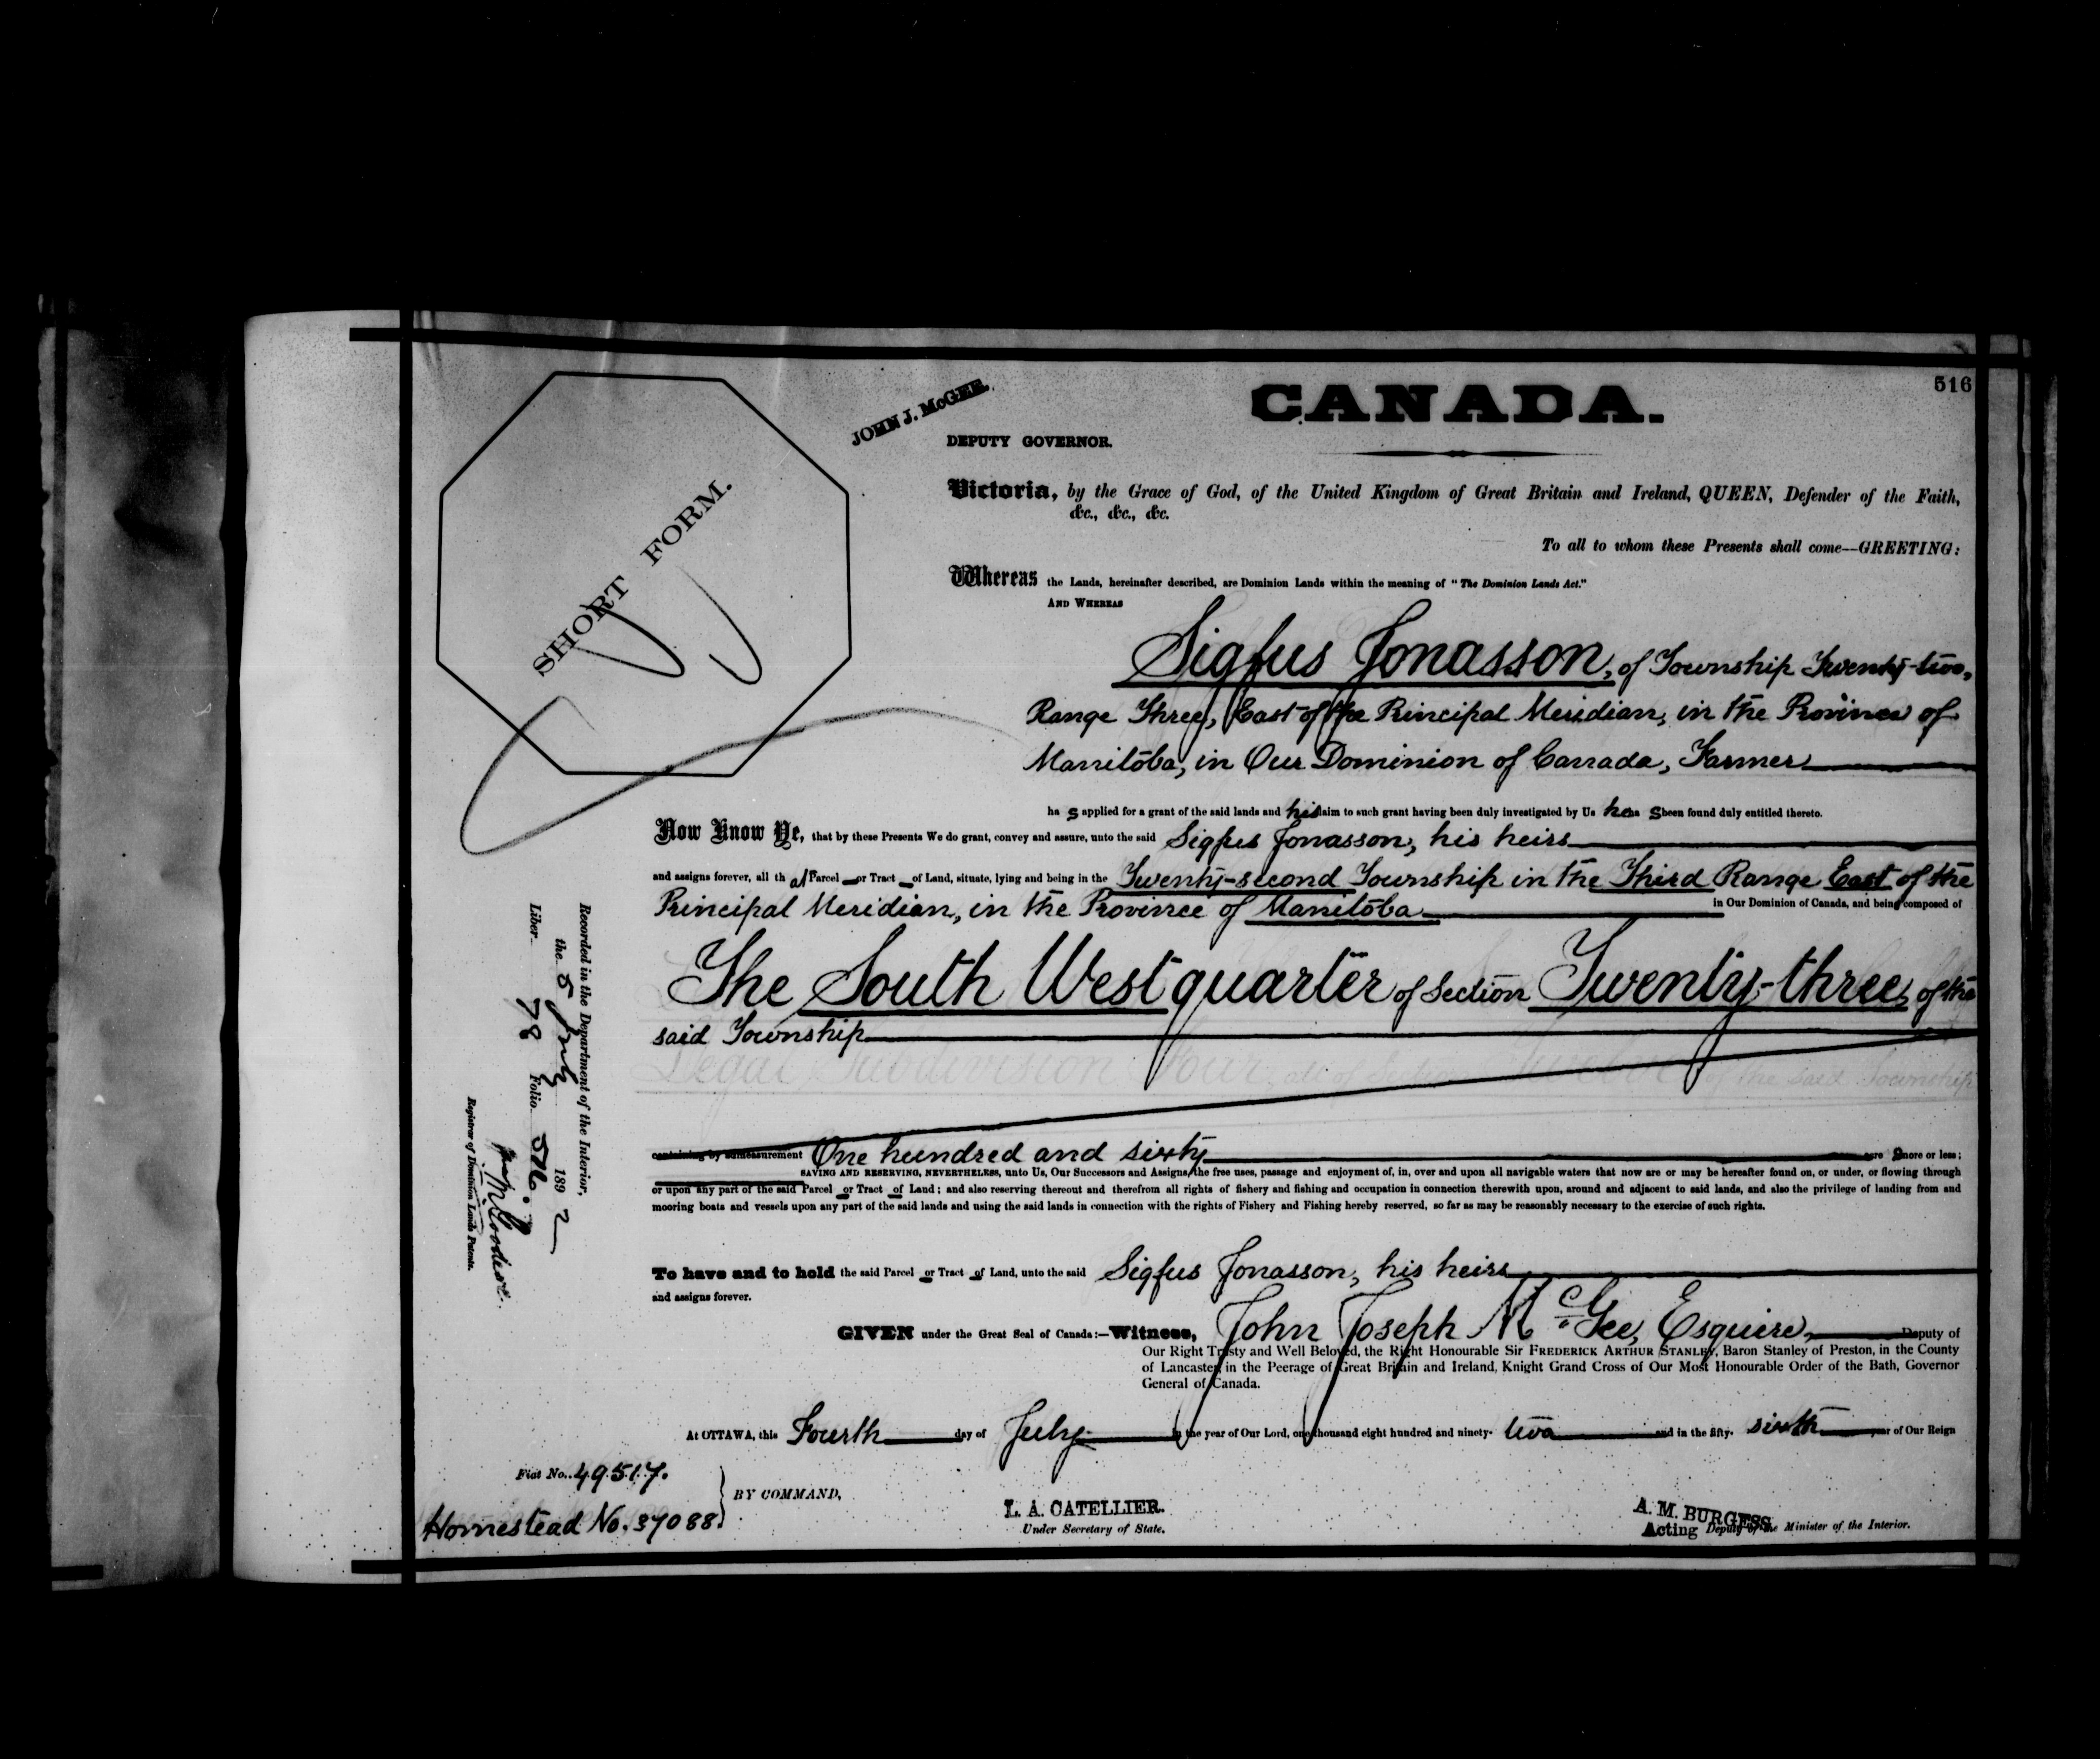 516
CANADA.
JOHN J. McGEE.
DEPUTY GOVERNOR.
SHORT FORM.
Victoria, by the Grace of God, of the United Kingdom of Great Britain and Ireland, QUEEN, Defender of the Faith,
&c., &c., &c.
To all to whom these Presents shall come—GREETING:
Whereas the Lands, hereinafter described, are Dominion Lands within the meaning of "The Dominion Lands Act."
AND WHEREAS
Sigfus Jonasson, of Township Twenty-two,
Range Three, East of the Principal Meridian, in the Province of
Manitoba, in Our Dominion of Canada, Farmer
ha s applied for a grant of the said lands and his claim to such grant having been duly investigated by Us he ha s been found duly entitled thereto.
Now Know Ye, that by these Presents We do grant, convey and assure, unto the said Sigfus Jonasson, his heirs
and assigns forever, all th at Parcel or Tract of Land, situate, lying and being in the Twenty-second Township in the Third Range East of the
Principal Meridian, in the Province of Manitoba in Our Dominion of Canada, and being composed of
The South West quarter of Section Twenty-three, of the
said Township
containing by admeasurement One hundred and sixty acre s more or less;
SAVING AND RESERVING, NEVERTHELESS, unto Us, Our Successors and Assigns, the free uses, passage and enjoyment of, in, over and upon all navigable waters that now are or may be hereafter found on, or under, or flowing through
or upon any part of the said Parcel or Tract of Land; and also reserving thereout and therefrom all rights of fishery and fishing and occupation in connection therewith upon, around and adjacent to said lands, and also the privilege of landing from and
mooring boats and vessels upon any part of the said lands and using the said lands in connection with the rights of Fishery and Fishing hereby reserved, so far as may be reasonably necessary to the exercise of such rights.
To have and to hold the said Parcel or Tract of Land, unto the said Sigfus Jonasson, his heirs
and assigns forever.
GIVEN under the Great Seal of Canada:—Witness, John Joseph McGee, Esquire, Deputy of
Our Right Trusty and Well Beloved, the Right Honourable Sir FREDERICK ARTHUR STANLEY, Baron Stanley of Preston, in the County
of Lancaster, in the Peerage of Great Britain and Ireland, Knight Grand Cross of Our Most Honourable Order of the Bath, Governor
General of Canada.
At OTTAWA, this Fourth day of July in the year of Our Lord, one thousand eight hundred and ninety- two and in the fifty- sixth year of Our Reign
Fiat No. 49517.
Homestead No. 37088
BY COMMAND,
L. A. CATELLIER.
Under Secretary of State.
A. M. BURGESS
Acting Deputy of the Minister of the Interior.
Recorded in the Department of the Interior,
the 5 July 1892
Liber 78 Folio 516.
Registrar of Dominion Lands Patents.